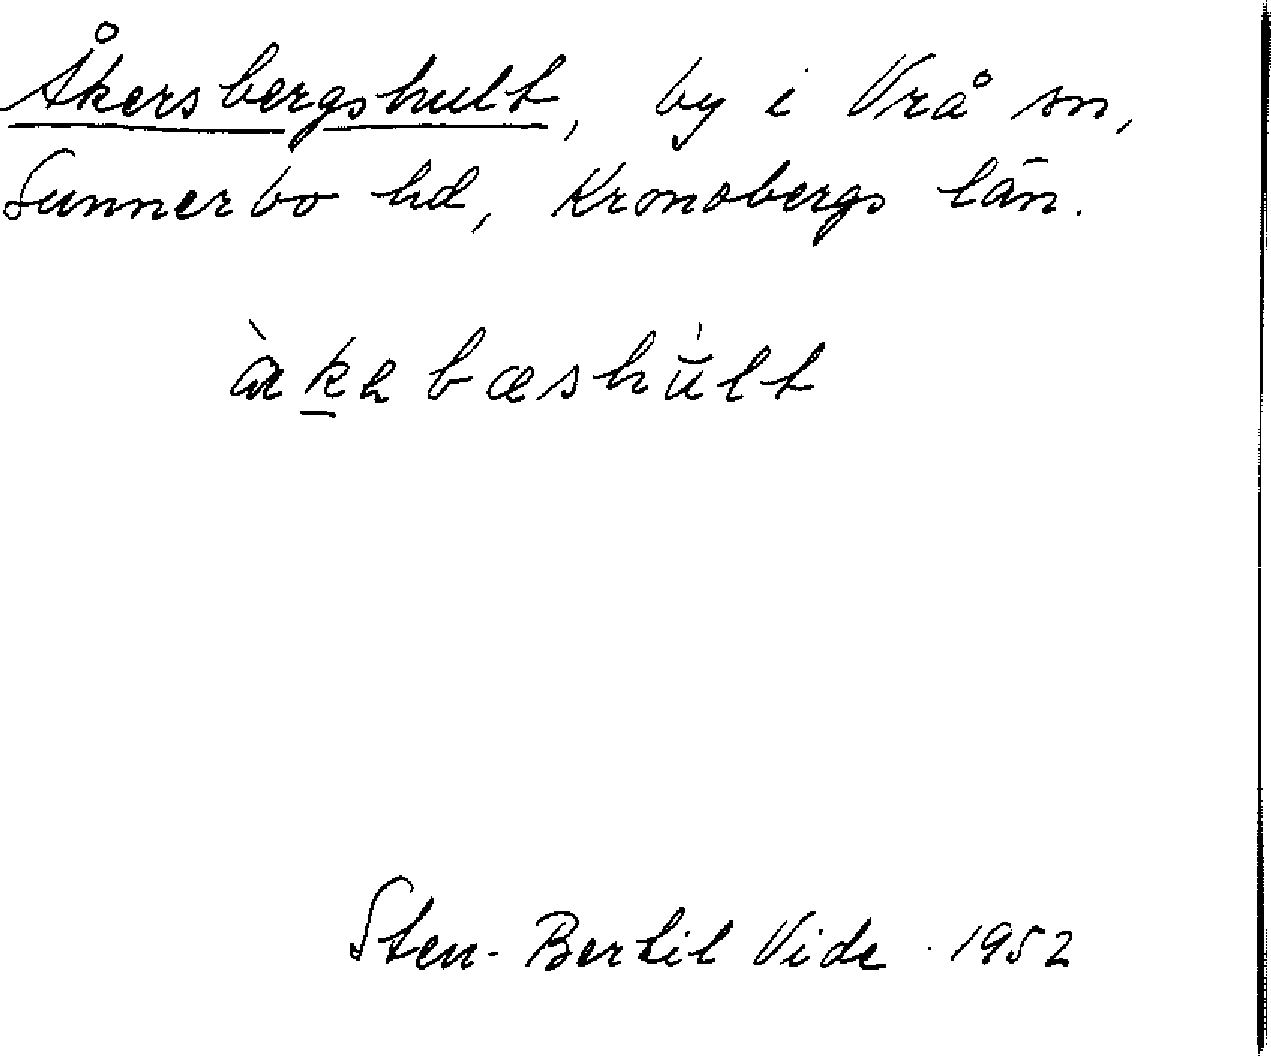 Åkersbergshult, by i Vrå sn,
Sunnerbo hd, Kronobergs län.
Sten-Bertil Vide · 1952